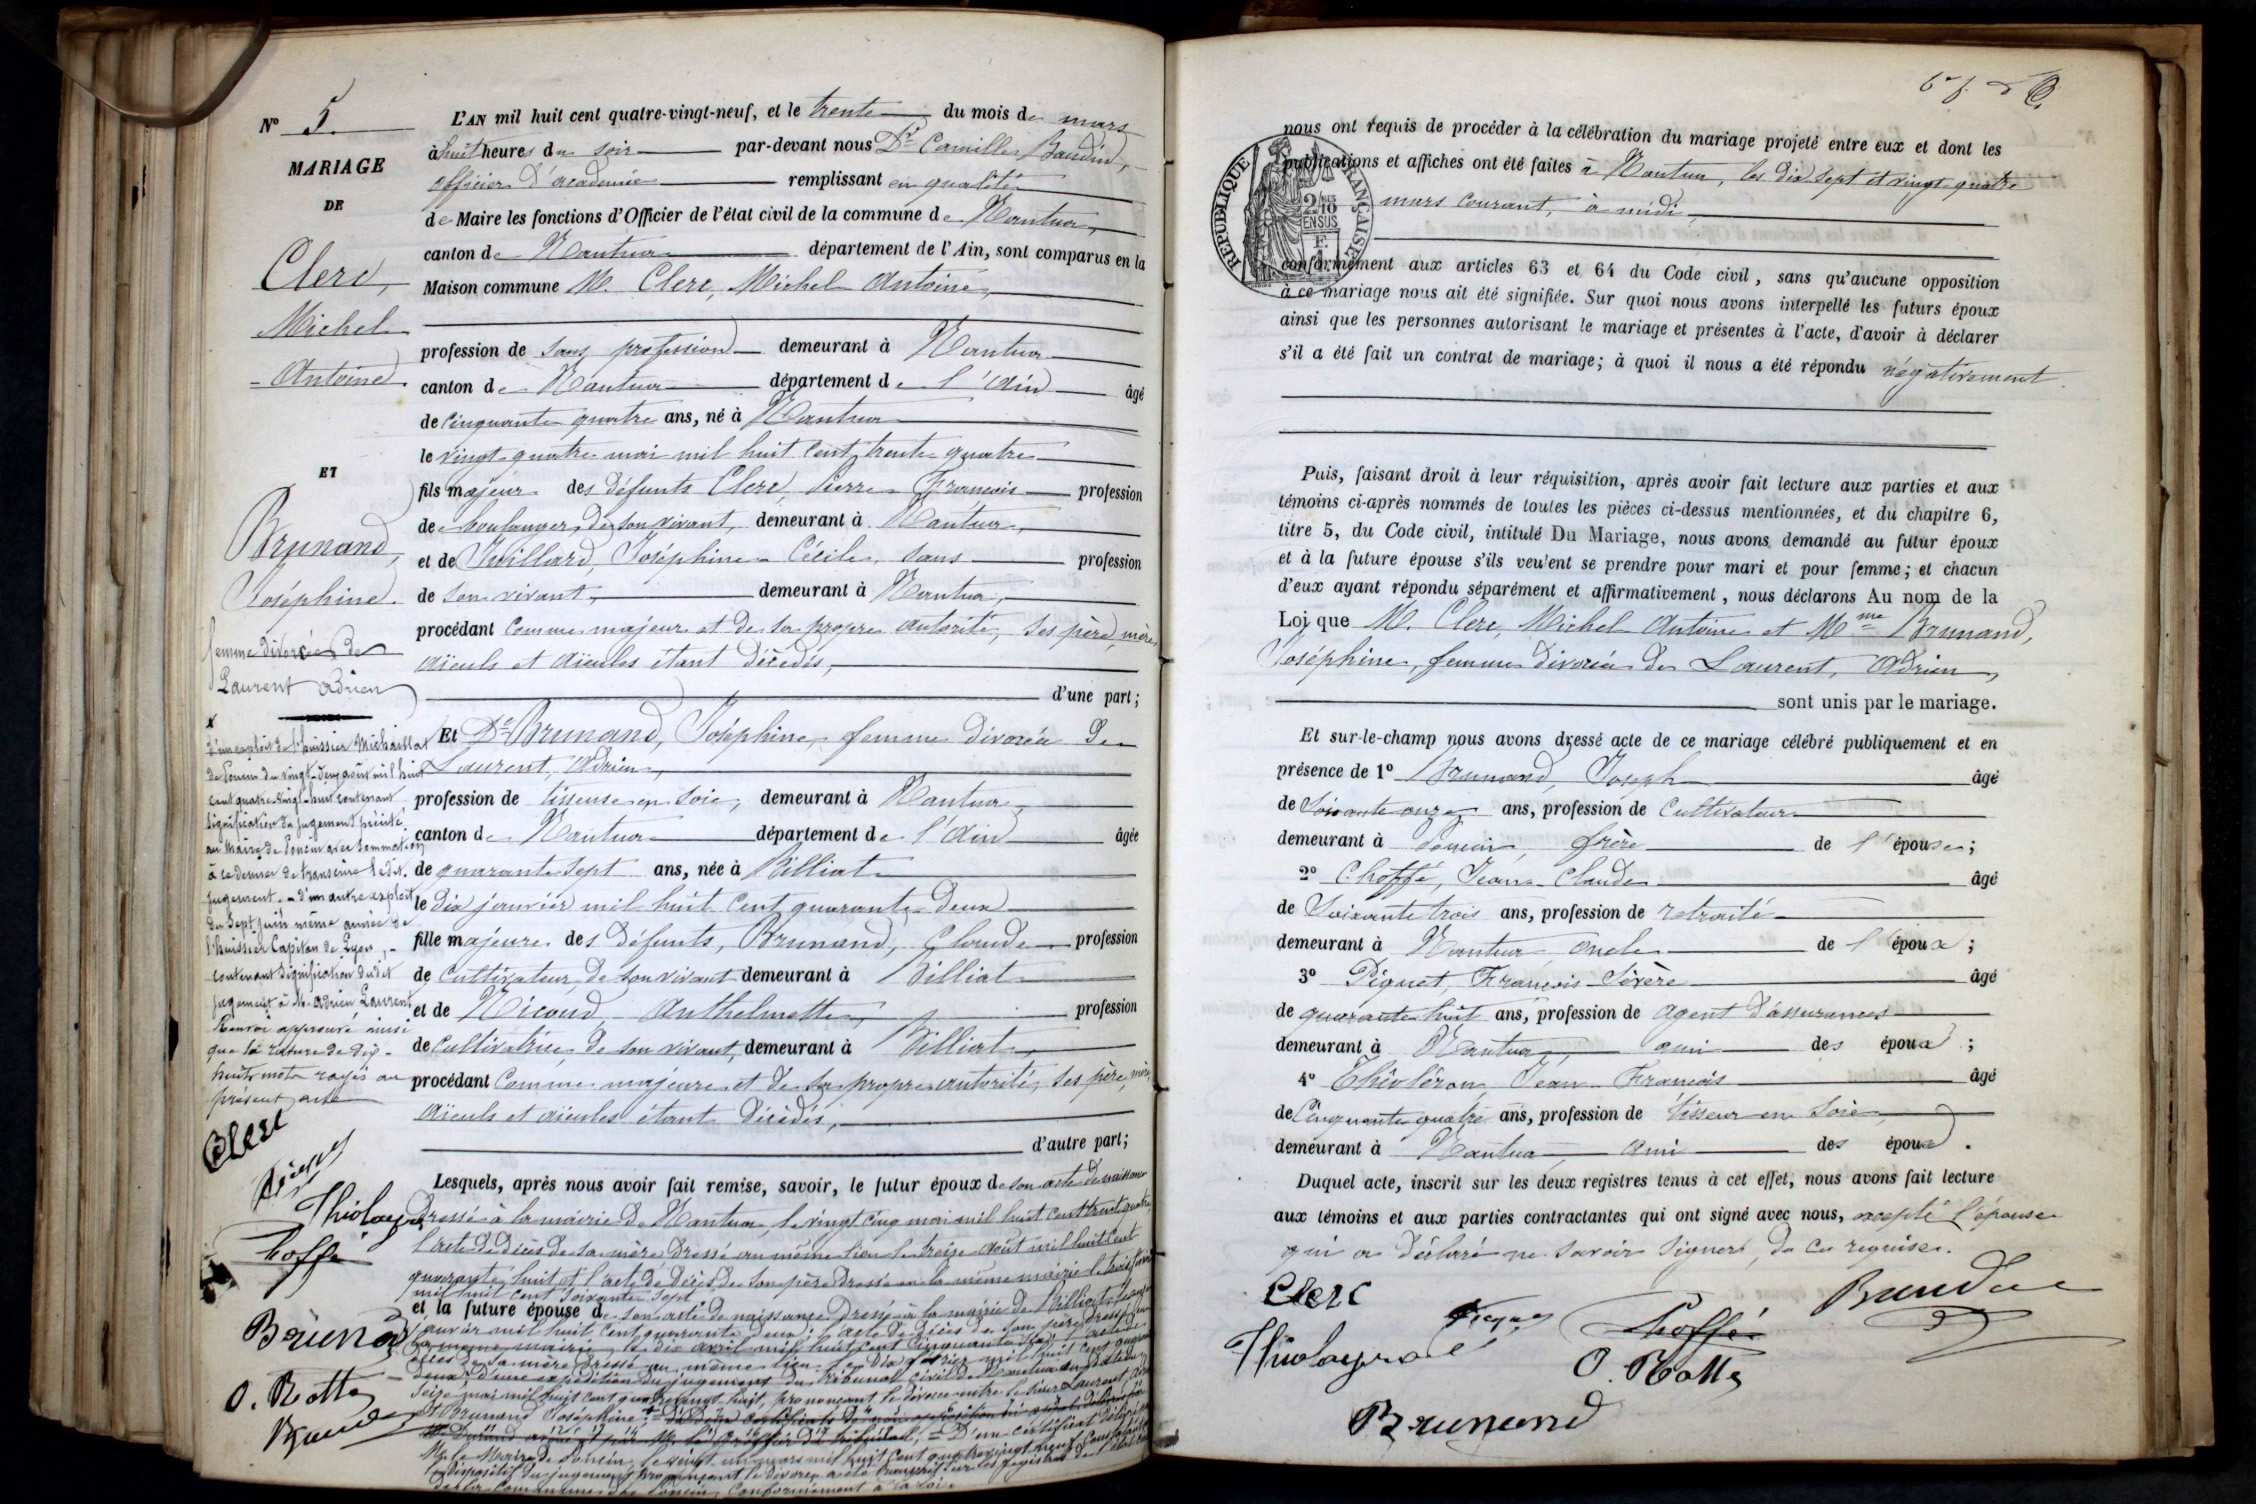 N° 5.
MARIAGE
DE
Clerc,
Michel
Antoine
ET
Brunand,
Joséphine
femme divorcée de
Laurent Adrien
x
d'un exploit de l'huissier Michaillat
de Poncin du vingt-deux août mil huit
cent quatre-vingt-huit contenant
signification du jugement précité
au Maire de Poncin avec sommation
à ce dernier de transcrire ledit
jugement. - d'un autre exploit
du sept juin même année de
l'huissier Capitan de Lyon, -
contenant signification dudit
jugement à M. Adrien Laurent
Renvoi approuvé ainsi
que la rature de dix-
huit mots rayés au
présent acte
Clerc
Thiolayron
Choffé
Brunand
L'AN mil huit cent quatre-vingt-neuf, et le trente du mois de mars
à huit heures du soir par-devant nous Dr Camille Baudin,
officier d'académie remplissant en qualité
de Maire les fonctions d'Officier de l'état civil de la commune de Nantua,
canton de Nantua département de l'Ain, sont comparus en la
Maison commune M. Clerc, Michel Antoine,
profession de sans profession demeurant à Nantua
canton de Nantua département de l'Ain âgé
de cinquante quatre ans, né à Nantua
le vingt quatre mai mil huit cent trente quatre
fils majeur des défunts Clerc, Pierre François profession
de boulanger, de son vivant, demeurant à Nantua,
et de Juillard, Joséphine Cécile, sans profession
de son vivant, demeurant à Nantua,
procédant comme majeur et de sa propre autorité, ses père, mère
aïeuls et aïeules étant décédés,
d'une part;
Et De Brunand, Joséphine, femme divorcée de
Laurent, Adrien,
profession de tisseuse en soie, demeurant à Nantua,
canton de Nantua département de l'Ain âgée
de quarante sept ans, née à Billiat
le dix janvier mil huit cent quarante deux
fille majeure des défunts, Brunand, Claude profession
de cultivateur, de son vivant demeurant à Billiat
et de Nicoud, Anthelmette, profession
de cultivatrice de son vivant, demeurant à Billiat,
procédant comme majeure et de sa propre autorité, ses père, mère
aïeuls et aïeules étant décédés,
d'autre part;
Lesquels, après nous avoir fait remise, savoir, le futur époux de son acte de naissance
dressé à la mairie de Nantua, le vingt cinq mai mil huit cent trente quatre,
l'acte de décès de sa mère dressé au même lieu le treize août mil huit cent
quarante huit et l'acte de décès de son père dressé en la même mairie le trois
mil huit cent soixante sept
et la future épouse de son acte de naissance dressé à la mairie de Billiat le
janvier mil huit cent quarante deux; acte de décès de son père dressé en
la même mairie le dix avril mil huit cent cinquante l'acte de
décès de sa mère dressé au même lieu le dix février mil huit cent
deux d'une expédition du jugement du tribunal civil de Nantua en date du
seize mai mil huit cent quatre vingt huit, prononçant le divorce entre le sieur Laurent,
et Brunand Joséphine;
D'un certificat délivré
M. le Maire de Poncin, le vingt un mars mil huit cent quatre vingt neuf constatant
le dispositif du jugement prononçant le divorce a été transcrit sur les registres de l'état
de la commune de Poncin, conformément à la loi.
O. Rotte
RÉPUBLIQUE FRANÇAISE
nous ont requis de procéder à la célébration du mariage projeté entre eux et dont les
publications et affiches ont été faites à Nantua, les dix sept et vingt quatre
mars courant, à midi,
conformément aux articles 63 et 64 du Code civil, sans qu'aucune opposition
à ce mariage nous ait été signifiée. Sur quoi nous avons interpellé les futurs époux
ainsi que les personnes autorisant le mariage et présentes à l'acte, d'avoir à déclarer
s'il a été fait un contrat de mariage; à quoi il nous a été répondu négativement.
Puis, faisant droit à leur réquisition, après avoir fait lecture aux parties et aux
témoins ci-après nommés de toutes les pièces ci-dessus mentionnées, et du chapitre 6,
titre 5, du Code civil, intitulé Du Mariage, nous avons demandé au futur époux
et à la future épouse s'ils veulent se prendre pour mari et pour femme; et chacun
d'eux ayant répondu séparément et affirmativement, nous déclarons Au nom de la
Loi que M. Clerc, Michel Antoine et Mme Brunand,
Joséphine, femme divorcée de Laurent, Adrien,
sont unis par le mariage.
Et sur-le-champ nous avons dressé acte de ce mariage célébré publiquement et en
présence de 1° Brunand, Joseph âgé
de soixante onze ans, profession de cultivateur
demeurant à Poncin, frère de l'épouse;
2° Choffé, Jean-Claude âgé
de soixante trois ans, profession de retraité
demeurant à Nantua, oncle de l'époux;
3° Piquet, François Sévère âgé
de quarante huit ans, profession de agent d'assurances
demeurant à Nantua, ami des époux;
4° Thioléron, Jean François âgé
de cinquante quatre ans, profession de tisseur en soie,
demeurant à Nantua, ami des époux.
Duquel acte, inscrit sur les deux registres tenus à cet effet, nous avons fait lecture
aux témoins et aux parties contractantes qui ont signé avec nous, excepté l'épouse
qui a déclaré ne savoir signer, de ce requise.
Clerc
Choffé
Baudin
Thiolayron
O. Rotte
Brunand